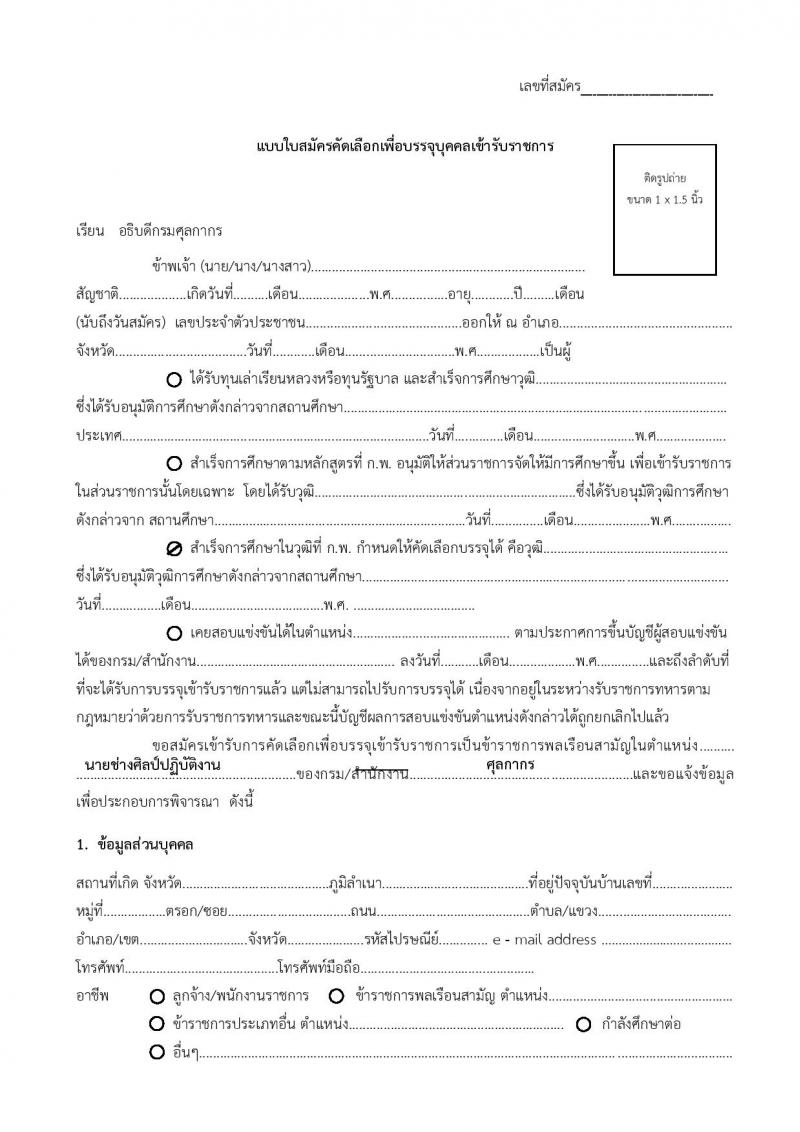 เลขที่สมัคร______________________
แบบใบสมัครคัดเลือกเพื่อบรรจุบุคคลเข้ารับราชการ
ติดรูปถ่าย
ขนาด 1 x 1.5 นิ้ว
เรียน อธิบดีกรมศุลกากร
ข้าพเจ้า (นาย/นาง/นางสาว)..............................................................................
สัญชาติ...................เกิดวันที่..........เดือน....................พ.ศ................อายุ............ปี.........เดือน
(นับถึงวันสมัคร) เลขประจำตัวประชาชน.............................................ออกให้ ณ อำเภอ.................................................
จังหวัด.....................................วันที่............เดือน...............................พ.ศ..................เป็นผู้
ได้รับทุนเล่าเรียนหลวงหรือทุนรัฐบาล และสำเร็จการศึกษาวุฒิ......................................................
ซึ่งได้รับอนุมัติการศึกษาดังกล่าวจากสถานศึกษา.............................................................................................................
ประเทศ.......................................................................................วันที่..............เดือน.............................พ.ศ....................
สำเร็จการศึกษาตามหลักสูตรที่ ก.พ. อนุมัติให้ส่วนราชการจัดให้มีการศึกษาขึ้น เพื่อเข้ารับราชการ
ในส่วนราชการนั้นโดยเฉพาะ โดยได้รับวุฒิ..........................................................................ซึ่งได้รับอนุมัติวุฒิการศึกษา
ดังกล่าวจาก สถานศึกษา.......................................................................วันที่...............เดือน......................พ.ศ.................
สำเร็จการศึกษาในวุฒิที่ ก.พ. กำหนดให้คัดเลือกบรรจุได้ คือวุฒิ....................................................
ซึ่งได้รับอนุมัติวุฒิการศึกษาดังกล่าวจากสถานศึกษา........................................................................................................
วันที่.................เดือน.....................................พ.ศ. ..................................
เคยสอบแข่งขันได้ในตำแหน่ง............................................ ตามประกาศการขึ้นบัญชีผู้สอบแข่งขัน
ได้ของกรม/สำนักงาน........................................................ ลงวันที่...........เดือน...................พ.ศ...............และถึงลำดับที่
ที่จะได้รับการบรรจุเข้ารับราชการแล้ว แต่ไม่สามารถไปรับการบรรจุได้ เนื่องจากอยู่ในระหว่างรับราชการทหารตาม
กฎหมายว่าด้วยการรับราชการทหารและขณะนี้บัญชีผลการสอบแข่งขันตำแหน่งดังกล่าวได้ถูกยกเลิกไปแล้ว
ขอสมัครเข้ารับการคัดเลือกเพื่อบรรจุเข้ารับราชการเป็นข้าราชการพลเรือนสามัญในตำแหน่ง..........
นายช่างศิลป์ปฏิบัติงาน ศุลกากร
..............................................................ของกรม/สำนักงาน...............................................................และขอแจ้งข้อมูล
เพื่อประกอบการพิจารณา ดังนี้
1. ข้อมูลส่วนบุคคล
สถานที่เกิด จังหวัด..........................................ภูมิลำเนา..........................................ที่อยู่ปัจจุบันบ้านเลขที่.......................
หมู่ที่..................ตรอก/ซอย...................................ถนน...........................................ตำบล/แขวง......................................
อำเภอ/เขต..............................จังหวัด......................รหัสไปรษณีย์.............. e - mail address .....................................
โทรศัพท์............................................โทรศัพท์มือถือ..................................................
อาชีพ ลูกจ้าง/พนักงานราชการ ข้าราชการพลเรือนสามัญ ตำแหน่ง....................................................
ข้าราชการประเภทอื่น ตำแหน่ง............................................................. กำลังศึกษาต่อ
อื่นๆ......................................................................................................................................................